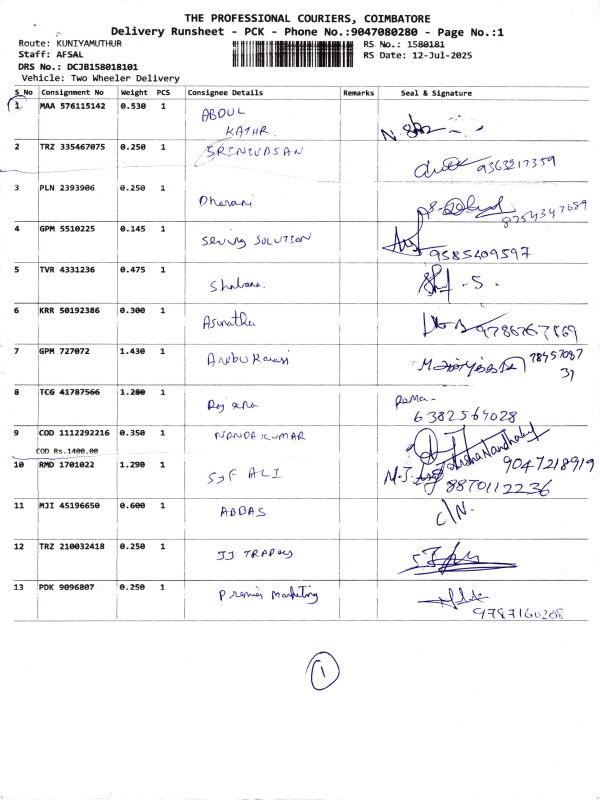 THE PROFESSIONAL COURIERS, COIMBATORE
Delivery Runsheet - PCK - Phone No.:9047080280 - Page No.:1
Route: KUNIYAMUTHUR
RS No.: 1580181
Staff: AFSAL
RS Date: 12-Jul-2025
DRS No.: DCJB158018101
Vehicle: Two Wheeler Delivery
S_No Consignment No Weight PCS Consignee Details Remarks Seal & Signature
1 MAA 576115142 0.530 1 ABDUL
KATHR.
2 TRZ 335467075 0.250 1 SRINIVASAN
9363217359
3 PLN 2393906 0.250 1 Dharani
8754347689
4 GPM 5510225 0.145 1 Sewing SOLUTION
9585409597
5 TVR 4331236 0.475 1 Shabana.
6 KRR 50192386 0.300 1
7 GPM 727072 1.430 1
8 TCG 41787566 1.280 1
Rema-
6382564028
9 COD 1112292216 0.350 1 NANDAKUMAR
COD Rs.1400.00
9047218919
10 RMD 1701022 1.290 1 ALI
8870112236
11 MJI 45196650 0.600 1 ABBAS
C/N.
12 TRZ 210032418 0.250 1 JJ TRADERS
13 PDK 9096807 0.250 1 Premier Marketing
9787160208
1